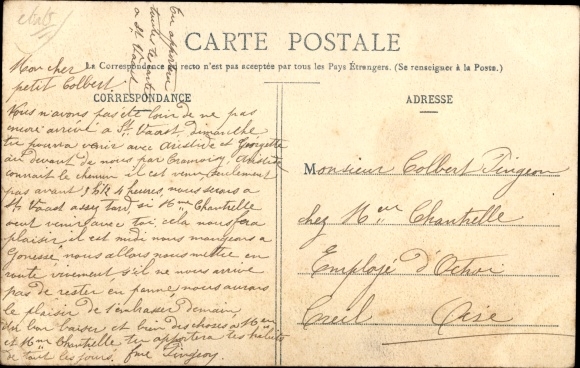 CARTE POSTALE
La Correspondance au recto n'est pas acceptée par tous les Pays Étrangers. (Se renseigner à la Poste.)
CORRESPONDANCE
ADRESSE
Mon cher
petit Colbert
Nous n'avons pas été loin de ne pas
encore arrivé à St Vaast dimanche
tu pourra venir avec Aristide et Georgette
au devant de nous par Cramoisy, Aristide
connait le chemin il est venu, seulement
pas avant 3h 1/2 4 heures, nous serons a
St Vaast assez tard, si Mme Chantrelle
veut venir avec toi, cela nous fera
plaisir, il est midi nous mangeons a
Gonesse, nous allons nous mettre en
route vivement s'il ne nous arrive
pas de rester en panne, nous aurons
le plaisir de t'embrasser demain,
un bon baiser et bien des choses a Mr
et Mme Chantrelle tu apportera tes habits
de tout les jours. Pingeon
Tu apportera
a St Vaast
Monsieur Colbert Pingeon
chez Mr Chantrelle
Employé d'Octroi
Creil Oise